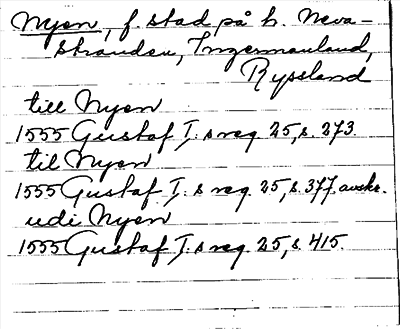 Nyen, f. stad på h. Neva-
stranden, Ingermanland,
Ryssland
till Nyen
1555 Gustaf I:s reg 25, s. 273.
til Nyen
1555 Gustaf I:s reg. 25, s. 377. avskr.
udi Nyen
1555 Gustaf I:s reg. 25, s. 415.